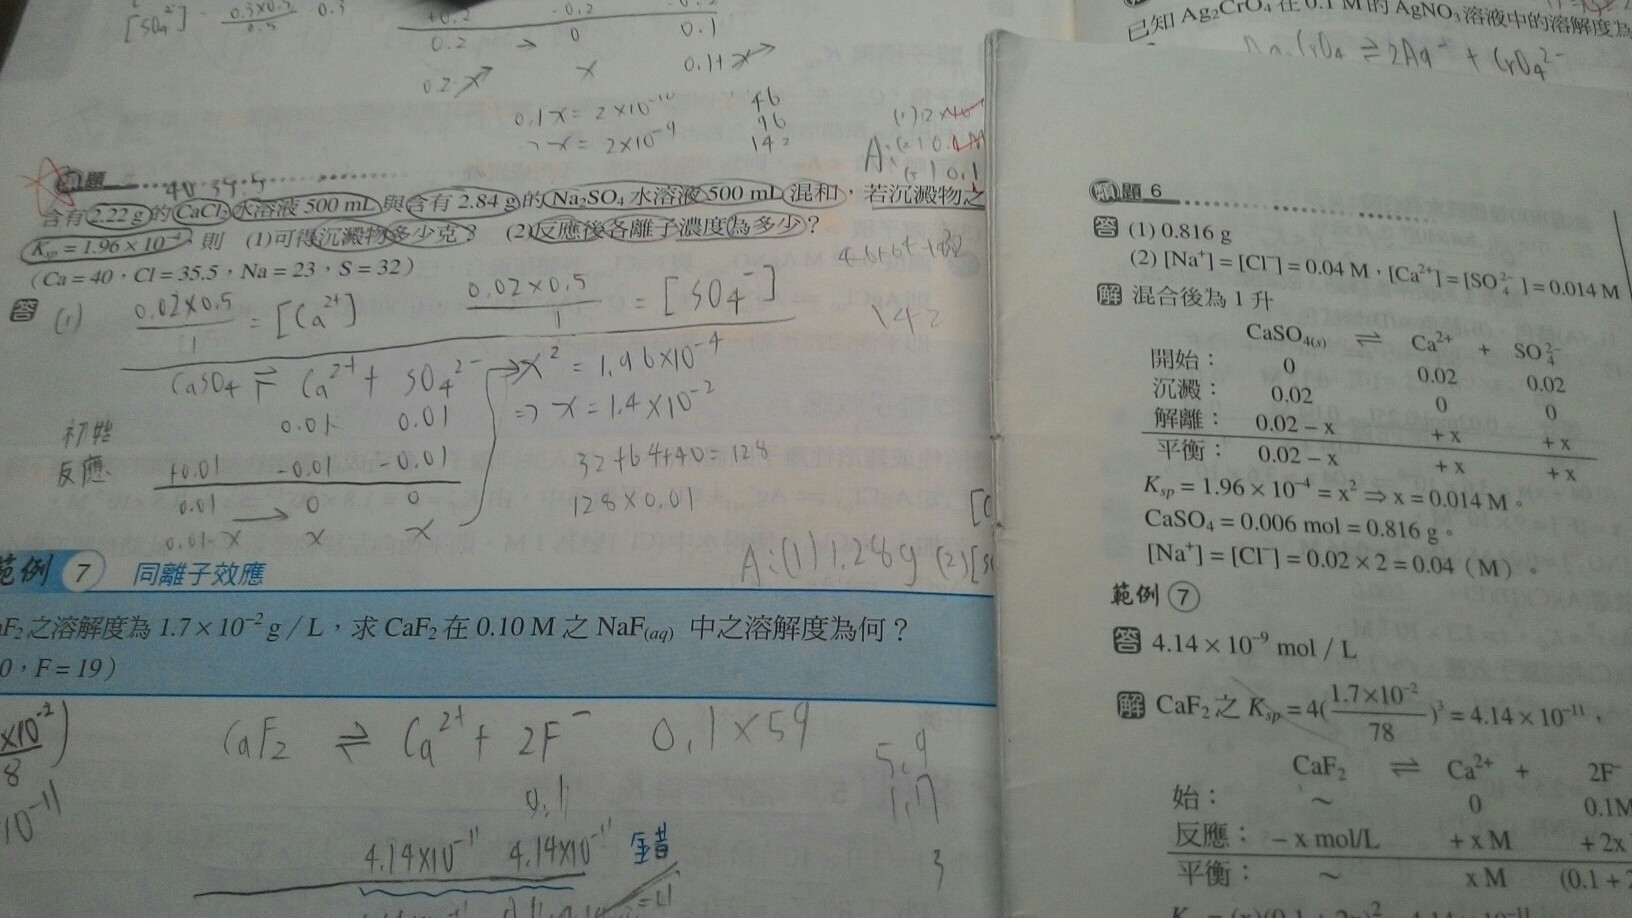 [SO₄²⁻] 0.3×0.5 / 0.5 0.3
+0.2 -0.2 -0.2
0.2 → 0 0.1
0.2-x x 0.1+x
0.1x = 2×10⁻¹⁰
→ x = 2×10⁻⁹
46
96
142
類題
40 35.5
含有 2.22 g 的 CaCl₂ 水溶液 500 mL 與含有 2.84 g 的 Na₂SO₄ 水溶液 500 mL 混和，若沉澱物之
Ksp = 1.96 × 10⁻⁴，則 (1)可得沉澱物多少克？ (2)反應後各離子濃度為多少？
（Ca = 40，Cl = 35.5，Na = 23，S = 32）
答 (1) 0.02×0.5 / 1 = [Ca²⁺] 0.02×0.5 / 1 = [SO₄⁻]
142
CaSO₄ ⇌ Ca²⁺ + SO₄²⁻ → x² = 1.96×10⁻⁴
⇒ x = 1.4×10⁻²
初始 0.01 0.01
反應 +0.01 -0.01 -0.01
0.01 → 0 0
0.01-x x x
32+64+40=128
128×0.01
A:(1)1.28g (2)[
範例 7 同離子效應
aF₂ 之溶解度為 1.7 × 10⁻² g / L，求 CaF₂ 在 0.10 M 之 NaF(aq) 中之溶解度為何？
0，F = 19）
×10⁻²)
8
10⁻¹¹
CaF₂ ⇌ Ca²⁺ + 2F⁻ 0.1×59
5.9
1.7
0.1
4.14×10⁻¹¹ 4.14×10⁻¹¹ 錯
3
已知 Ag₂CrO₄ 在 0.1 M 的 AgNO₃ 溶液中的溶解度為
CrO₄ ⇌ 2Ag⁺ + CrO₄²⁻
類題 6
答 (1) 0.816 g
(2) [Na⁺] = [Cl⁻] = 0.04 M，[Ca²⁺] = [SO₄²⁻] = 0.014 M
解 混合後為 1 升
CaSO₄(s) ⇌ Ca²⁺ + SO₄²⁻
開始： 0 0.02 0.02
沉澱： 0.02 0 0
解離： 0.02 − x + x + x
平衡： 0.02 − x + x + x
Ksp = 1.96 × 10⁻⁴ = x² ⇒ x = 0.014 M。
CaSO₄ = 0.006 mol = 0.816 g。
[Na⁺] = [Cl⁻] = 0.02 × 2 = 0.04（M）。
範例 7
答 4.14 × 10⁻⁹ mol / L
解 CaF₂ 之 Ksp = 4(1.7×10⁻² / 78)³ = 4.14 × 10⁻¹¹，
CaF₂ ⇌ Ca²⁺ + 2F⁻
始： ~ 0 0.1M
反應： − x mol/L + x M + 2x
平衡： ~ x M (0.1 + 2